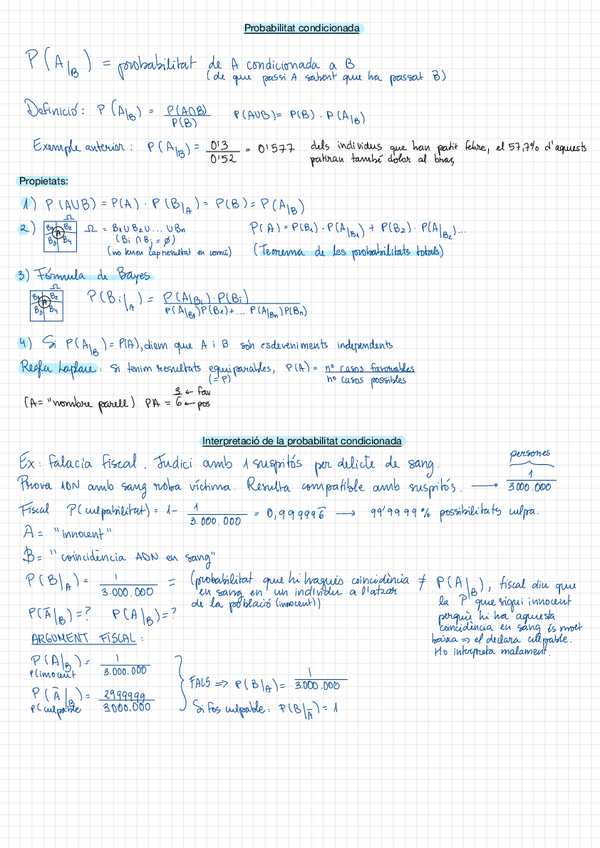 Probabilitat condicionada
P(A|B) = probabilitat de A condicionada a B
(de que passi A sabent que ha passat B)
Definició: P(A|B) = P(A∩B) / P(B)   P(A∪B) = P(B) · P(A|B)
Exemple anterior: P(A|B) = 0'3 / 0'52 = 0'577   dels individus que han patit febre, el 57,7% d'aquests
patiran també dolor al braç
Propietats:
1) P(A∪B) = P(A) · P(B|A) = P(B) = P(A|B)
2) B1 B2 A B3 B4 Ω   Ω = B1 ∪ B2 ∪ ... ∪ Bn   P(A) = P(B1) · P(A|B1) + P(B2) · P(A|B2)...
(Bi ∩ Bj = ∅)
(no tenen cap resultat en comú)   (Teorema de les probabilitats totals)
3) Fórmula de Bayes
B1 B2 A B3 B4 Ω   P(Bi|A) = P(A|Bi) · P(Bi) / P(A|B1)P(B1) + ... P(A|Bn)P(Bn)
4) Si P(A|B) = P(A), diem que A i B són esdeveniments independents
Regla Laplace: si tenim resultats equiparables, P(A) = nº casos favorables / nº casos possibles
(= P)
(A = "nombre parell) PA = 3 ← fav / 6 ← pos
Interpretació de la probabilitat condicionada
Ex: Falacia Fiscal. Judici amb 1 suspitós per delicte de sang.   persones
Prova ADN amb sang roba víctima. Resulta compatible amb suspitós. → 1 / 3.000.000
Fiscal P(culpabilitat) = 1 - 1 / 3.000.000 = 0,9999996 → 99'9999% possibilitats culpa.
A = "innocent"
B = "coincidència ADN en sang"
P(B|A) = 1 / 3.000.000 = (probabilitat que hi hagués coincidència en sang en un individu a l'atzar de la població (innocent)) ≠ P(A|B), fiscal diu que
la P que sigui innocent
perquè hi ha aquesta
coincidència en sang és molt
baixa ⇒ el declara culpable.
Ho interpreta malament.
P(Ā|B) = ?   P(A|B) = ?
ARGUMENT FISCAL:
P(A|B) = 1 / 3.000.000
P(innocent
P(Ā|B) = 2999999 / 3.000.000
P(culpable
FALS ⇒ P(B|A) = 1 / 3.000.000
Si fos culpable: P(B|Ā) = 1